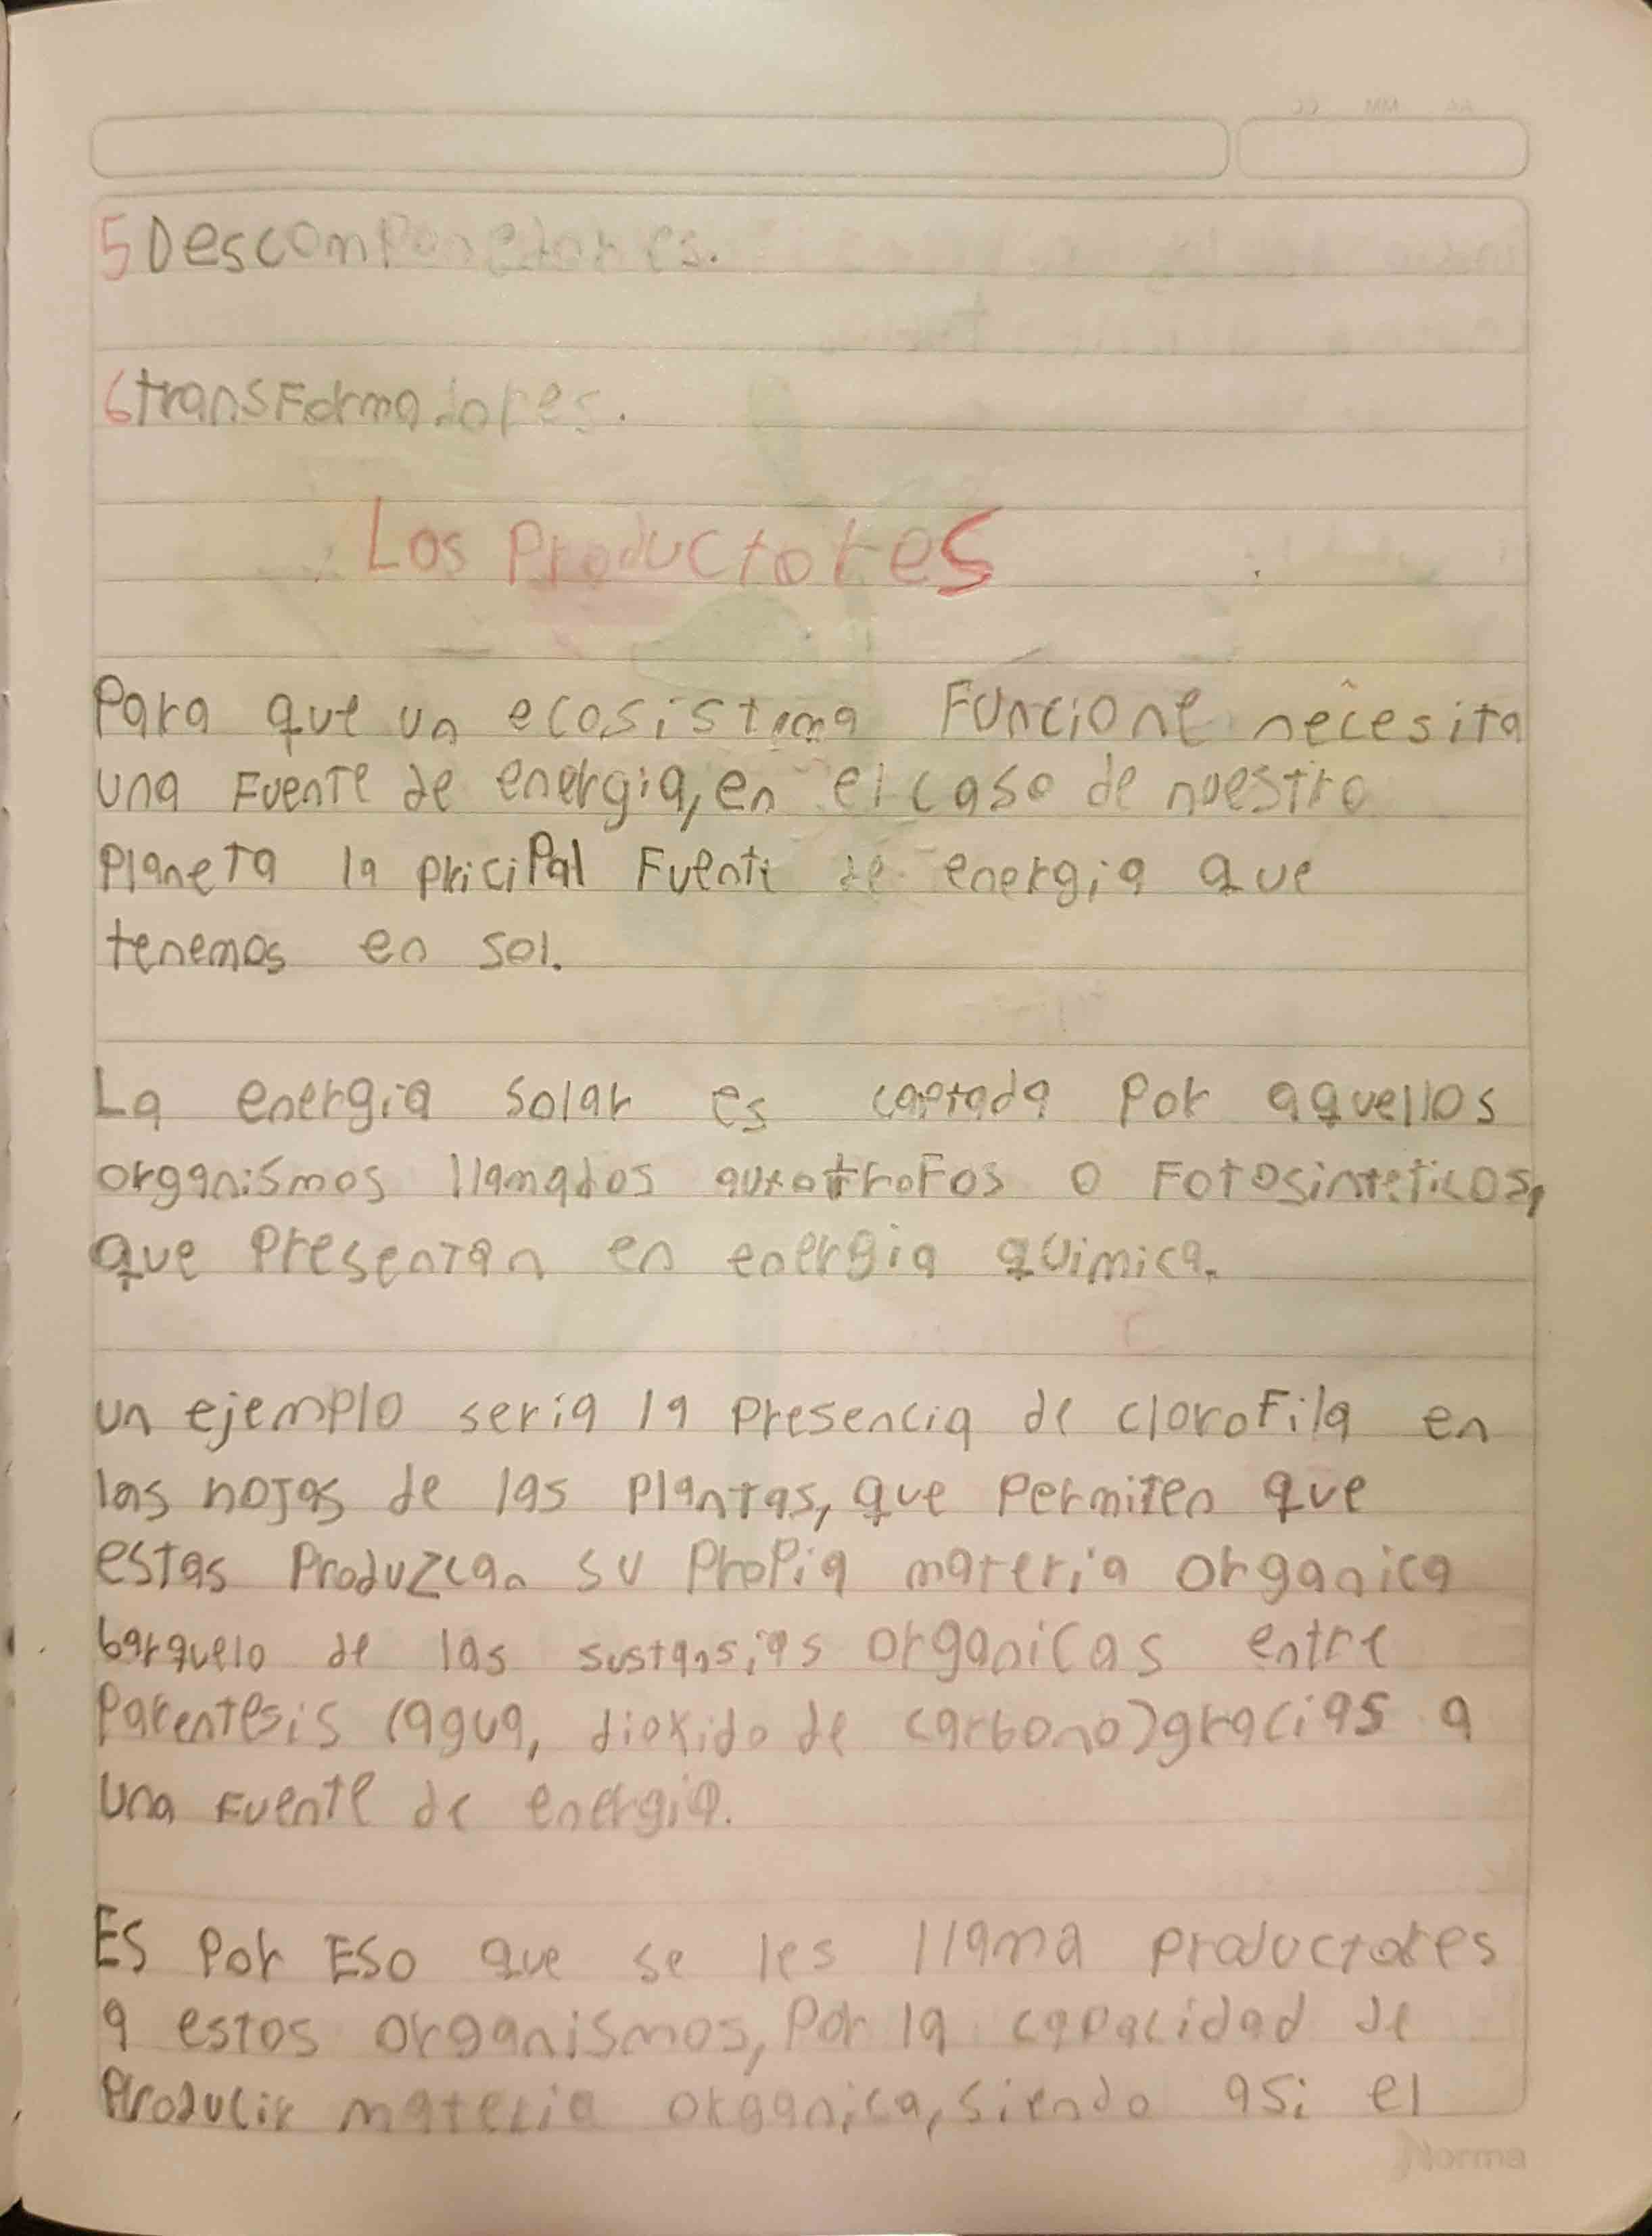 5 Descomponetores.
6 transFormadores.
Los Productores
Para que un ecosistema Funcione necesita
una Fuente de energia, en el caso de nuestro
Planeta la pricipal Fuente de energia que
tenemos en sol.
La energia solar es captada por aquellos
organismos llamados autotroFos o Fotosinteticos,
que Presentan en energia quimica.
un ejemplo seria la presencia de cloroFila en
las hojas de las plantas, que permiten que
estas Produzcan su Propia materia organica
barquelo de las sustansias organicas entre
Parentesis (agua, dioxido de carbono) gracias a
una Fuente de energia.
Es Por Eso que se les llama productores
a estos organismos, Por la capacidad de
Producir materia organica, siendo asi el
Norma